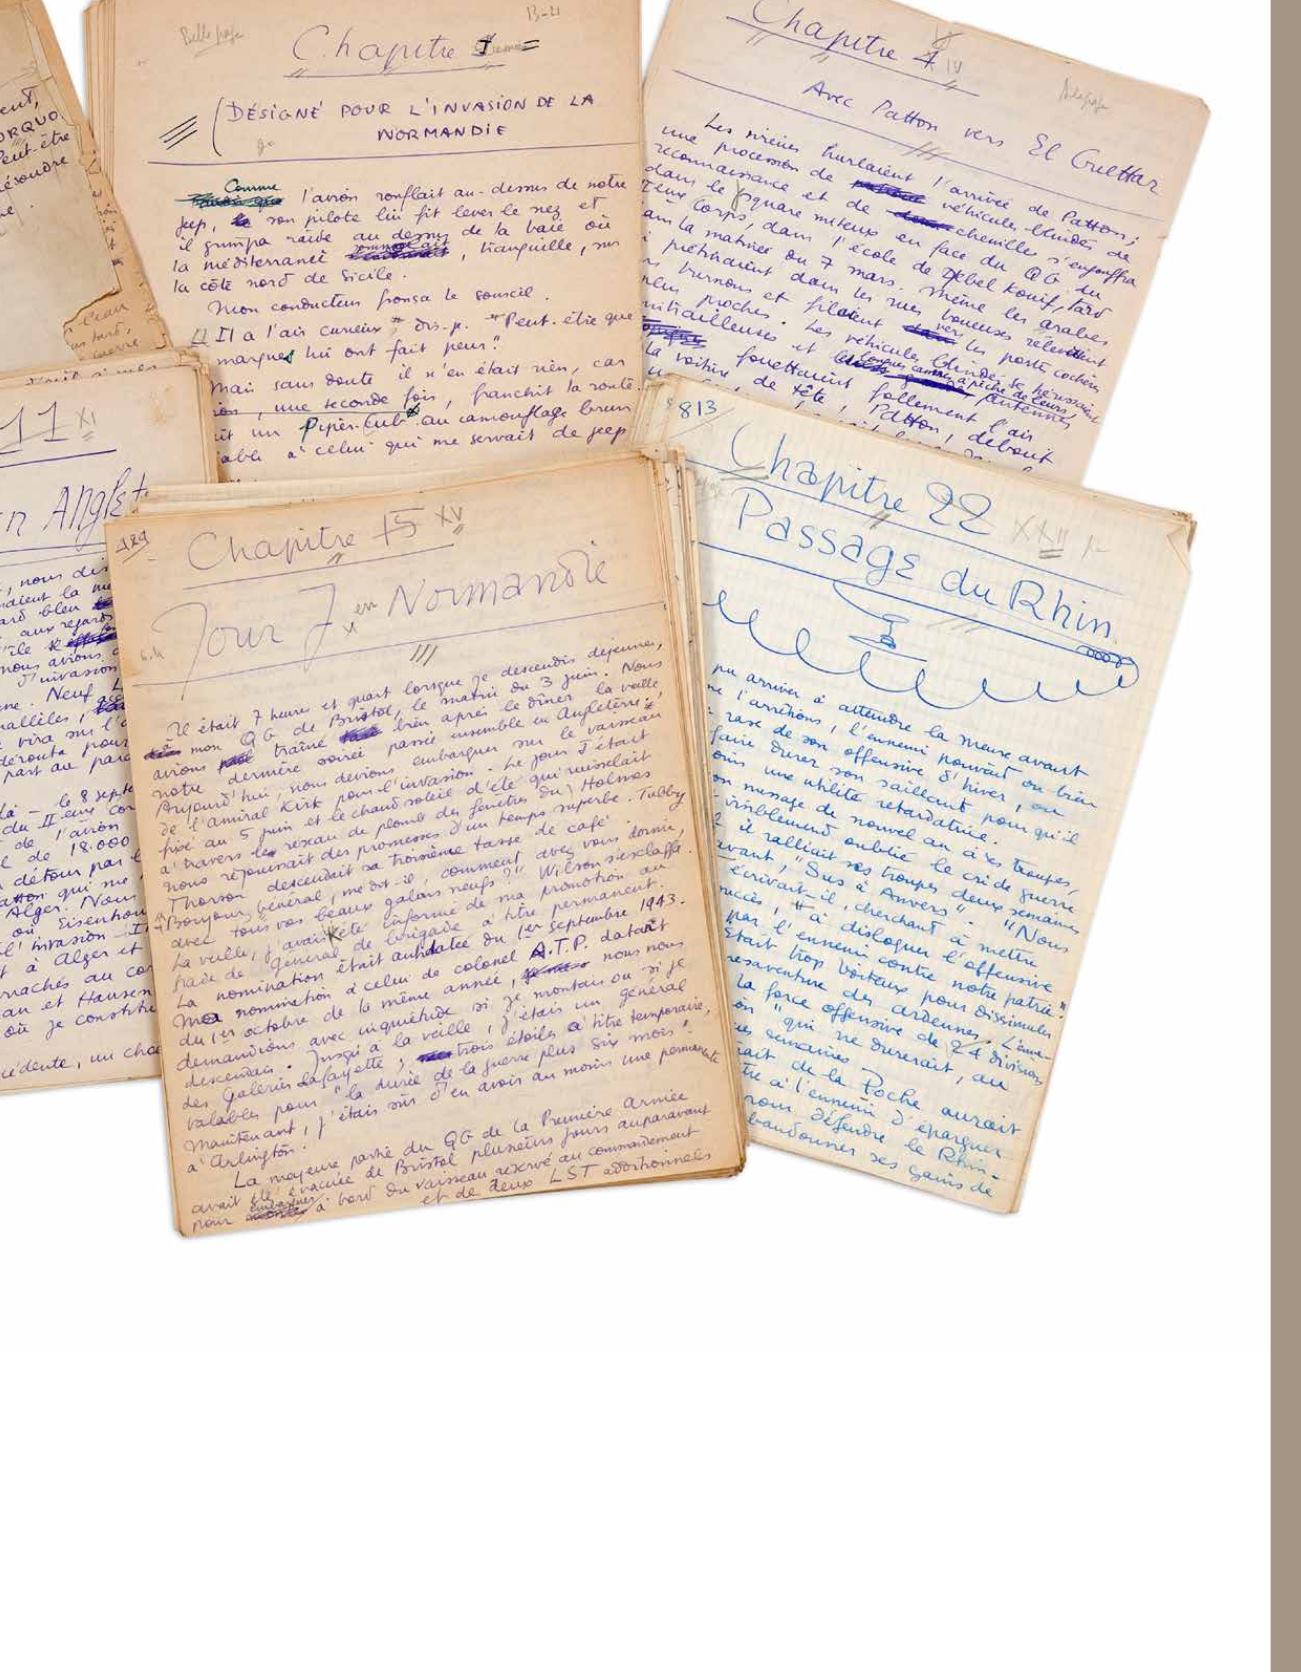 ent,
ORQUO
Peut-être
résoudre
Belle page
13-21
Chapitre I
(DÉSIGNÉ POUR L'INVASION DE LA
NORMANDIE
Comme l'avion ronflait au-dessus de notre
jeep, son pilote lui fit lever le nez et
il grimpa raide au dessus de la baie où
la méditerranée, tranquille, sur
la côte nord de Sicile.
Mon conducteur fronça le sourcil.
Il a l'air curieux, dis-je. "Peut-être que
marques lui ont fait peur."
Mais sans doute il n'en était rien, car
ion, une seconde fois, franchit la route.
it un Piper-Cub au camouflage brun
able à celui qui me servait de jeep
Chapitre 4 IV
Avec Patton vers El Guettar
Les sirènes hurlaient l'arrivée de Patton;
une procession de véhicules blindés de
reconnaissance et de chenilles s'engouffra
dans le square miteux en face du QG du
IIeme Corps, dans l'école de Djebel Kouif, tard
dans la matinée du 7 mars. Même les arabes
qui piétinaient dans les rues boueuses relevèrent
leurs burnous et filèrent vers les portes cochères
les plus proches. Les véhicules blindés se hérissaient
mitrailleuses et longues cannes à pêche de leurs antennes
fouettaient follement l'air
la voiture de tête, Patton, debout
11 XI
n Anglet
, nous dis
aux regards
nous avions
d'invasion
Neuf
vira sur l'
part au par
là – le 8 sept
du IIeme Cor
de l'avion
l de 18.000
détour par l
atton qui me
Alger. Nous
où Eisenhow
l'invasion
t à Alger et
rrachés au co
an et Hansen
où je constit
cédente, un cha
489
Chapitre 15 XV
Jour J en Normandie
Il était 7 heures et quart lorsque je descendis déjeuner,
à mon QG de Bristol, le matin du 3 juin. Nous
avions traîné bien après le dîner la veille
notre dernière soirée passée ensemble en Angleterre.
Aujourd'hui, nous devions embarquer sur le vaisseau
de l'amiral Kirk pour l'invasion. Le jour J était
fixé au 5 juin et le chaud soleil d'été qui ruisselait
à travers le réseau de plomb des fenêtres du Holmes
nous réjouissait des promesses d'un temps superbe. Tubby
Thorson descendait sa troisième tasse de café
"Bonjour, général, me dit-il, comment avez vous dormi,
avec tous vos beaux galons neufs?" Wilson s'esclaffa.
La veille, j'avais été informé de ma promotion au
grade de général de brigade à titre permanent.
La nomination était antidatée du 1er septembre 1943.
Ma nomination à celui de colonel A.T.P. datait
du 1er octobre de la même année, nous nous
demandions avec inquiétude si je montais ou si je
descendais. Jusqu'à la veille, j'étais un général
des Galeries Lafayette; trois étoiles à titre temporaire,
valables pour "la durée de la guerre plus six mois".
Maintenant, j'étais sûr d'en avoir au moins une permanente
à Arlington.
La majeure partie du QG de la Première Armée
avait été évacuée de Bristol plusieurs jours auparavant
pour embarquer à bord du vaisseau réservé au commandement
et de deux LST additionnels
813
Chapitre 22 XXII
Passage du Rhin
pu arriver à atteindre la Meuse avant
ne l'arrêtions, l'ennemi pouvait ou bien
rase de son offensive d'hiver, ou
faire durer son saillant pour qu'il
une utilité retardatrice.
on message de nouvel an à ses troupes,
visiblement oublié le cri de guerre
il ralliait ses troupes deux semaines
avant, "Sus à Anvers". "Nous
écrivait-il, cherchant à mettre
uccès, "à disloquer l'offensive
par l'ennemi contre notre patrie."
Etait trop boiteux pour dissimuler
mésaventure des ardennes. L'enne-
la force offensive de 24 divisions
on "qui ne durerait, au
ues semaines
rait de la Poche aurait
tre à l'ennemi d'épargner
pour défendre le Rhin.
bandonner ses gains de